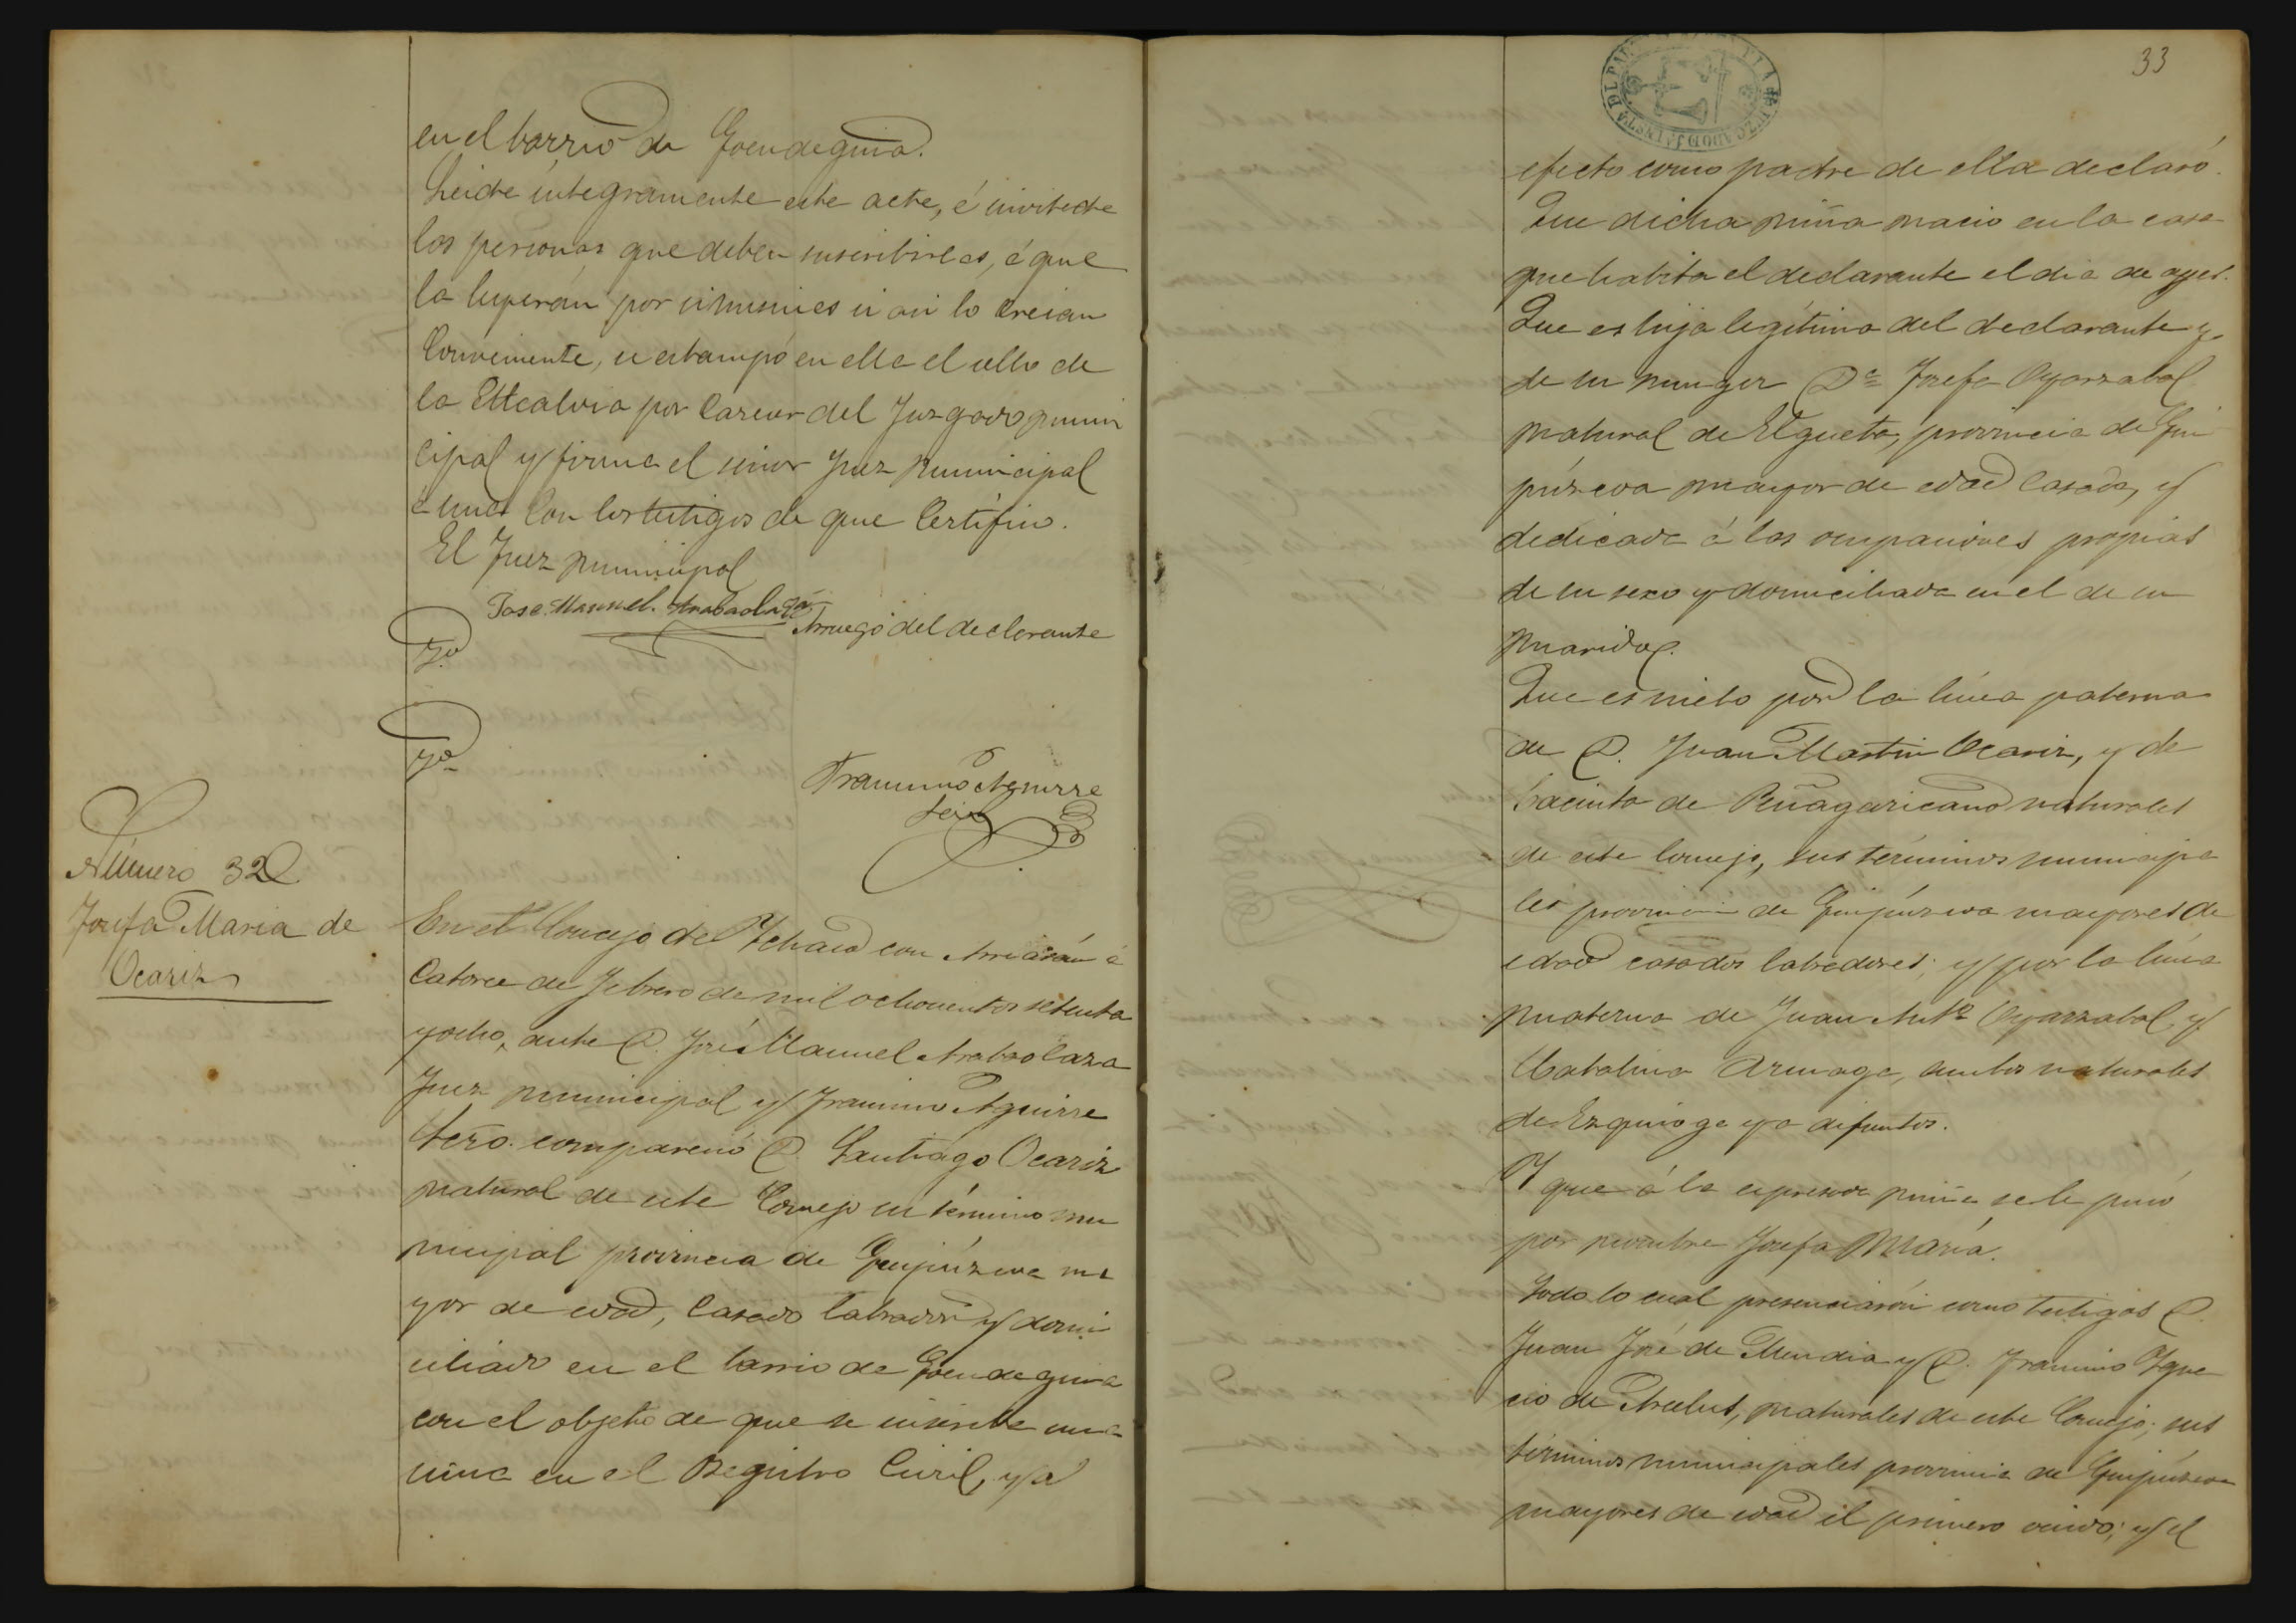 en el barrio de Goendeguia.
Leida íntegramente este acta, é invitada
las personas que deben suscribirlas, á que
la leyeran por si mismos si asi lo creian
Conveniente, se estampó en ella el sello de
la Alcaldia por Carecer del Juzgado muni
cipal y firma el señor Juez Municipal
á una con los testigos de que Certifico.
El Juez municipal
Jose Manuel Arabaolaza
Arruego del declarante
Tº
Tº
Francisco Aguirre
Srio
Número 32
Josefa Maria de
Ocariz
En el Concejo de Ichaso con Arriarán á
Catorce de Febrero de mil ochocientos setenta
y ocho, ante D. José Manuel Arabaolaza
Juez municipal y Francisco Aguirre
Secrº. compareció D. Santiago Ocariz
natural de este Concejo su término mu
nicipal provincia de Guipúzcoa ma
yor de edad, Casado labrador y domi
ciliado en el barrio de Goendeguia
con el objeto de que se inscriba una
niña en el Registro Civil, y á
33
efecto como padre de ella declaró.
Que dicha niña nacio en la casa
que habita el declarante el dia de ayer.
Que es hija legítima del declarante y
de su muger Dª Josefa Oyarzabal
natural de Elgueta, provincia de Gui
púzcoa mayor de edad Casada, y
dedicada á las ocupaciones propias
de su sexo y domiciliada en el de su
marido.
Que es nieta por la línea paterna
de D. Juan Martin Ocariz, y de
Jacinta de Peñagaricano naturales
de este Concejo, sus términos municipa
les provincia de Guipúzcoa mayores de
edad casados labradores; y por la línea
materna de Juan Antº Oyarzabal y
Catalina Armaga, ambos naturales
de Ezquioga ya difuntos.
Y que á la espresada niña se le puso
por nombre Josefa María.
Todo lo cual presenciarón como testigos D.
Juan José de Mendia y D. Francisco Igna
cio de naturales de este Concejo, sus
términos municipales provincia de Guipúzcoa
mayores de edad el primero viudo; y el